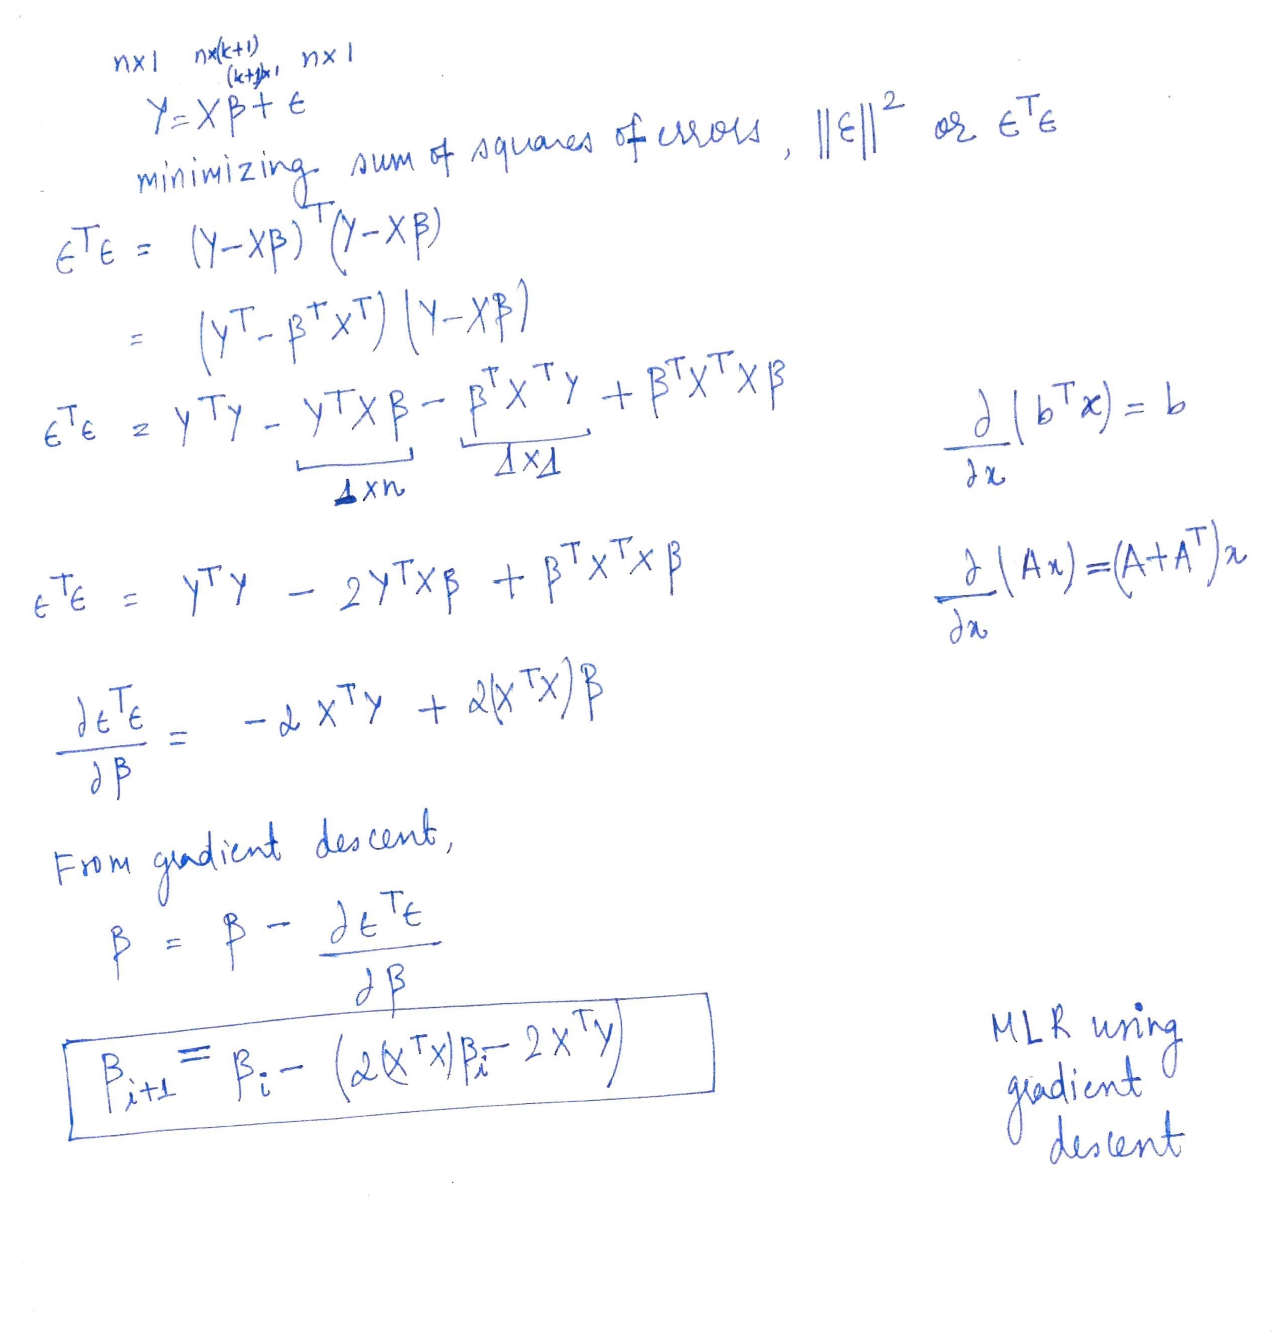 nx1 nx(k+1) nx1
(k+1)x1
Y=Xβ+ϵ
minimizing sum of squares of errors, ||ϵ||² or ϵᵀϵ
ϵᵀϵ = (Y-Xβ)ᵀ(Y-Xβ)
= (Yᵀ-βᵀXᵀ)(Y-Xβ)
ϵᵀϵ = YᵀY - YᵀXβ - βᵀXᵀY + βᵀXᵀXβ
1xn 1x1
∂/∂x (bᵀx) = b
ϵᵀϵ = YᵀY - 2YᵀXβ + βᵀXᵀXβ
∂/∂x (Ax) = (A+Aᵀ)x
∂ϵᵀϵ/∂β = -2XᵀY + 2(XᵀX)β
From gradient descent,
β = β - ∂ϵᵀϵ/∂β
βᵢ₊₁ = βᵢ - (2(XᵀX)βᵢ - 2XᵀY)
MLR using
gradient
descent